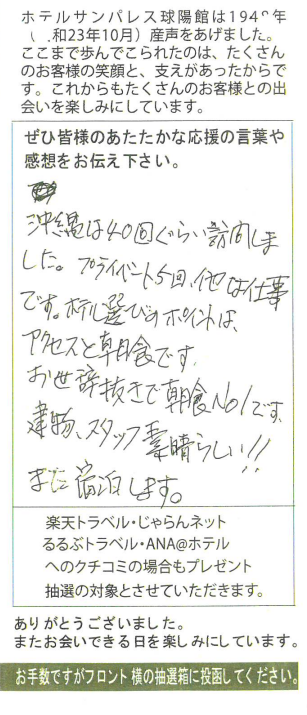 ホテルサンパレス球陽館は194 年
（ 和23年10月）産声をあげました。
ここまで歩んでこられたのは、たくさん
のお客様の笑顔と、支えがあったからで
す。これからもたくさんのお客様との出
会いを楽しみにしています。
ぜひ皆様のあたたかな応援の言葉や
感想をお伝え下さい。
沖縄は40回ぐらい訪問しま
した。プライベート5回、他は仕事
です。ホテル選びのポイントは、
アクセスと朝食です。
お世辞抜きで朝食No1です、
建物、スタッフ素晴らしい!!
また宿泊します。
楽天トラベル・じゃらんネット
るるぶトラベル・ANA@ホテル
へのクチコミの場合もプレゼント
抽選の対象とさせていただきます。
ありがとうございました。
またお会いできる日を楽しみにしています。
お手数ですがフロント横の抽選箱に投函してください。